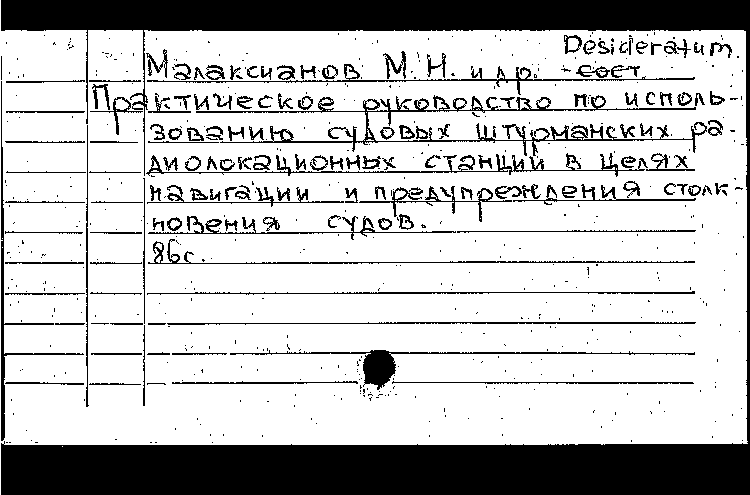 Desideratum
Малаксианов М.Н. и др. - сост.
Практическое руководство по исполь-
зованию судовых штурманских ра-
диолокационных станций в целях
навигации и предупреждения столк-
новения судов.
86с.